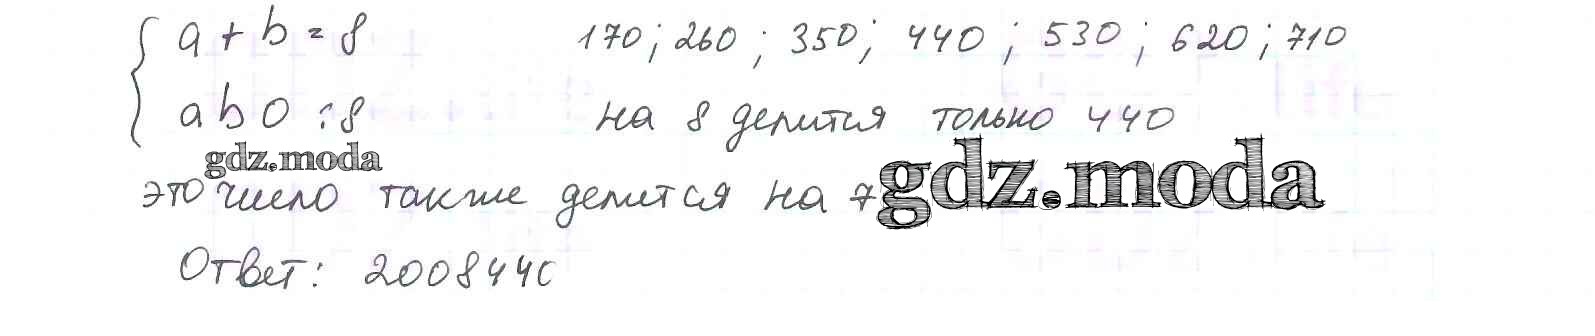 a + b = 8 170; 260; 350; 440; 530; 620; 710
ab0 ⋮ 8 на 8 делится только 440
gdz.moda
это число также делится на 7 gdz.moda
Ответ: 2008440